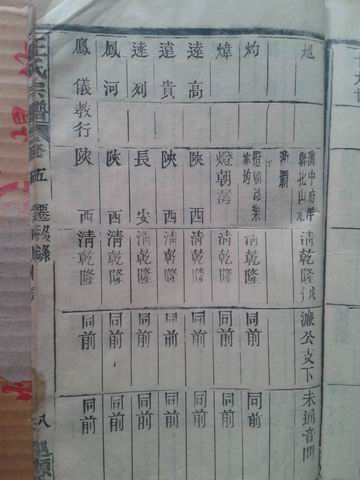 旭 漢中府 縣北山 清乾隆 濂公支下 未通音問
灼 清乾隆 同前 同前
煒 燈朝溝 清乾隆 同前 同前
遠高 陝西 清乾隆 同前 同前
遠貴 陝西 清乾隆 同前 同前
遠列 長安 清乾隆 同前 同前
鳳河 陝西 清乾隆 同前 同前
鳳儀教行 陝西 清乾隆 同前 同前
王氏宗譜 卷五 遷移錄 八